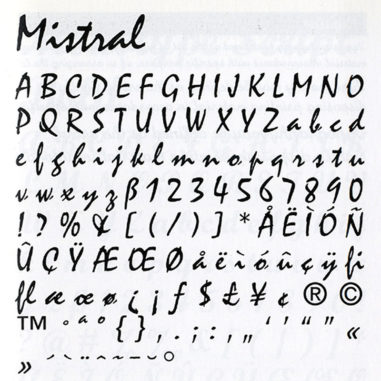 Mistral
A B C D E F G H I J K L M N O
P Q R S T U V W X Y Z a b c d
e f g h i j k l m n o p q r s t u
v w x y z ß 1 2 3 4 5 6 7 8 9 0
! ? % & [ ( / ) ] * Å Ë Ì Ó Ñ
Û Ç Ÿ Æ Œ Ø å ë ì ó û ç ÿ fi
fl æ œ ø ¿ ¡ ƒ $ £ ¥ ¢ ® ©
™ ° ª º { } , . ; : , „ ‘ ’ “ ” «
» ´ ` ¨ ˆ ˜ ¯ ˘ °